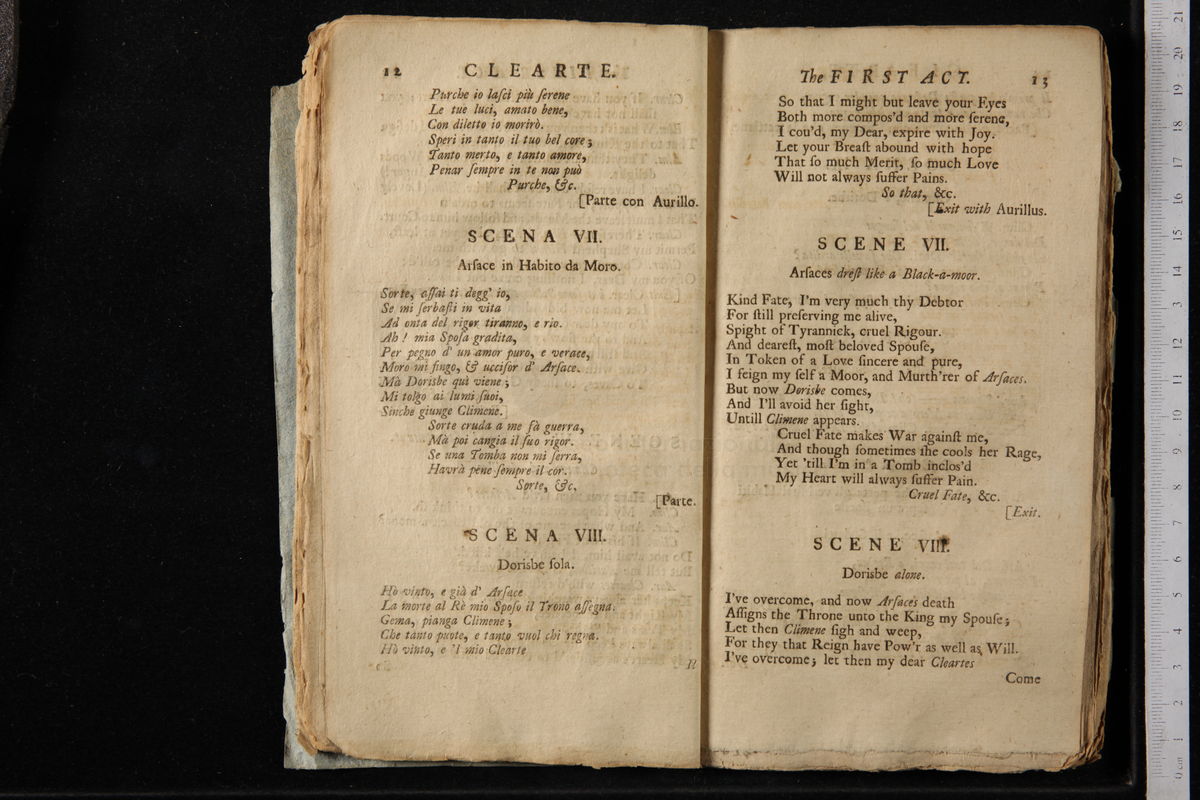 12 CLEARTE.
Purche io lasci più serene
Le tue luci, amato bene,
Con diletto io morirò.
Speri in tanto il tuo bel core;
Tanto merto, e tanto amore,
Penar sempre in te non può
Purche, &c.
[Parte con Aurillo.
SCENA VII.
Arsace in Habito da Moro.
Sorte, assai ti degg' io,
Se mi serbasti in vita
Ad onta del rigor tiranno, e rio.
Ah! mia Sposa gradita,
Per pegno d' un amor puro, e verace,
Moro mi fingo, & uccisor d' Arsace.
Mà Dorisbe quì viene;
Mi tolgo ai lumi suoi,
Sinche giunge Climene.
Sorte cruda a me fà guerra,
Mà poi cangia il suo rigor.
Se una Tomba non mi serra,
Havrà pene sempre il cor.
Sorte, &c.
[Parte.
SCENA VIII.
Dorisbe sola.
Hò vinto, e già d' Arsace
La morte al Rè mio Sposo il Trono assegna.
Gema, pianga Climene;
Che tanto puote, e tanto vuol chi regna.
Hò vinto, e 'l mio Clearte
Il
The FIRST ACT. 13
So that I might but leave your Eyes
Both more compos'd and more serene,
I cou'd, my Dear, expire with Joy.
Let your Breast abound with hope
That so much Merit, so much Love
Will not always suffer Pains.
So that, &c.
[Exit with Aurillus.
SCENE VII.
Arsaces drest like a Black-a-moor.
Kind Fate, I'm very much thy Debtor
For still preserving me alive,
Spight of Tyrannick, cruel Rigour.
And dearest, most beloved Spouse,
In Token of a Love sincere and pure,
I feign my self a Moor, and Murth'rer of Arsaces.
But now Dorisbe comes,
And I'll avoid her sight,
Untill Climene appears.
Cruel Fate makes War against me,
And though sometimes she cools her Rage,
Yet 'till I'm in a Tomb inclos'd
My Heart will always suffer Pain.
Cruel Fate, &c.
[Exit.
SCENE VIII.
Dorisbe alone.
I've overcome, and now Arsaces death
Assigns the Throne unto the King my Spouse;
Let then Climene sigh and weep,
For they that Reign have Pow'r as well as Will.
I've overcome; let then my dear Cleartes
Come
0 cm 1 2 3 4 5 6 7 8 9 10 11 12 13 14 15 16 17 18 19 20 21